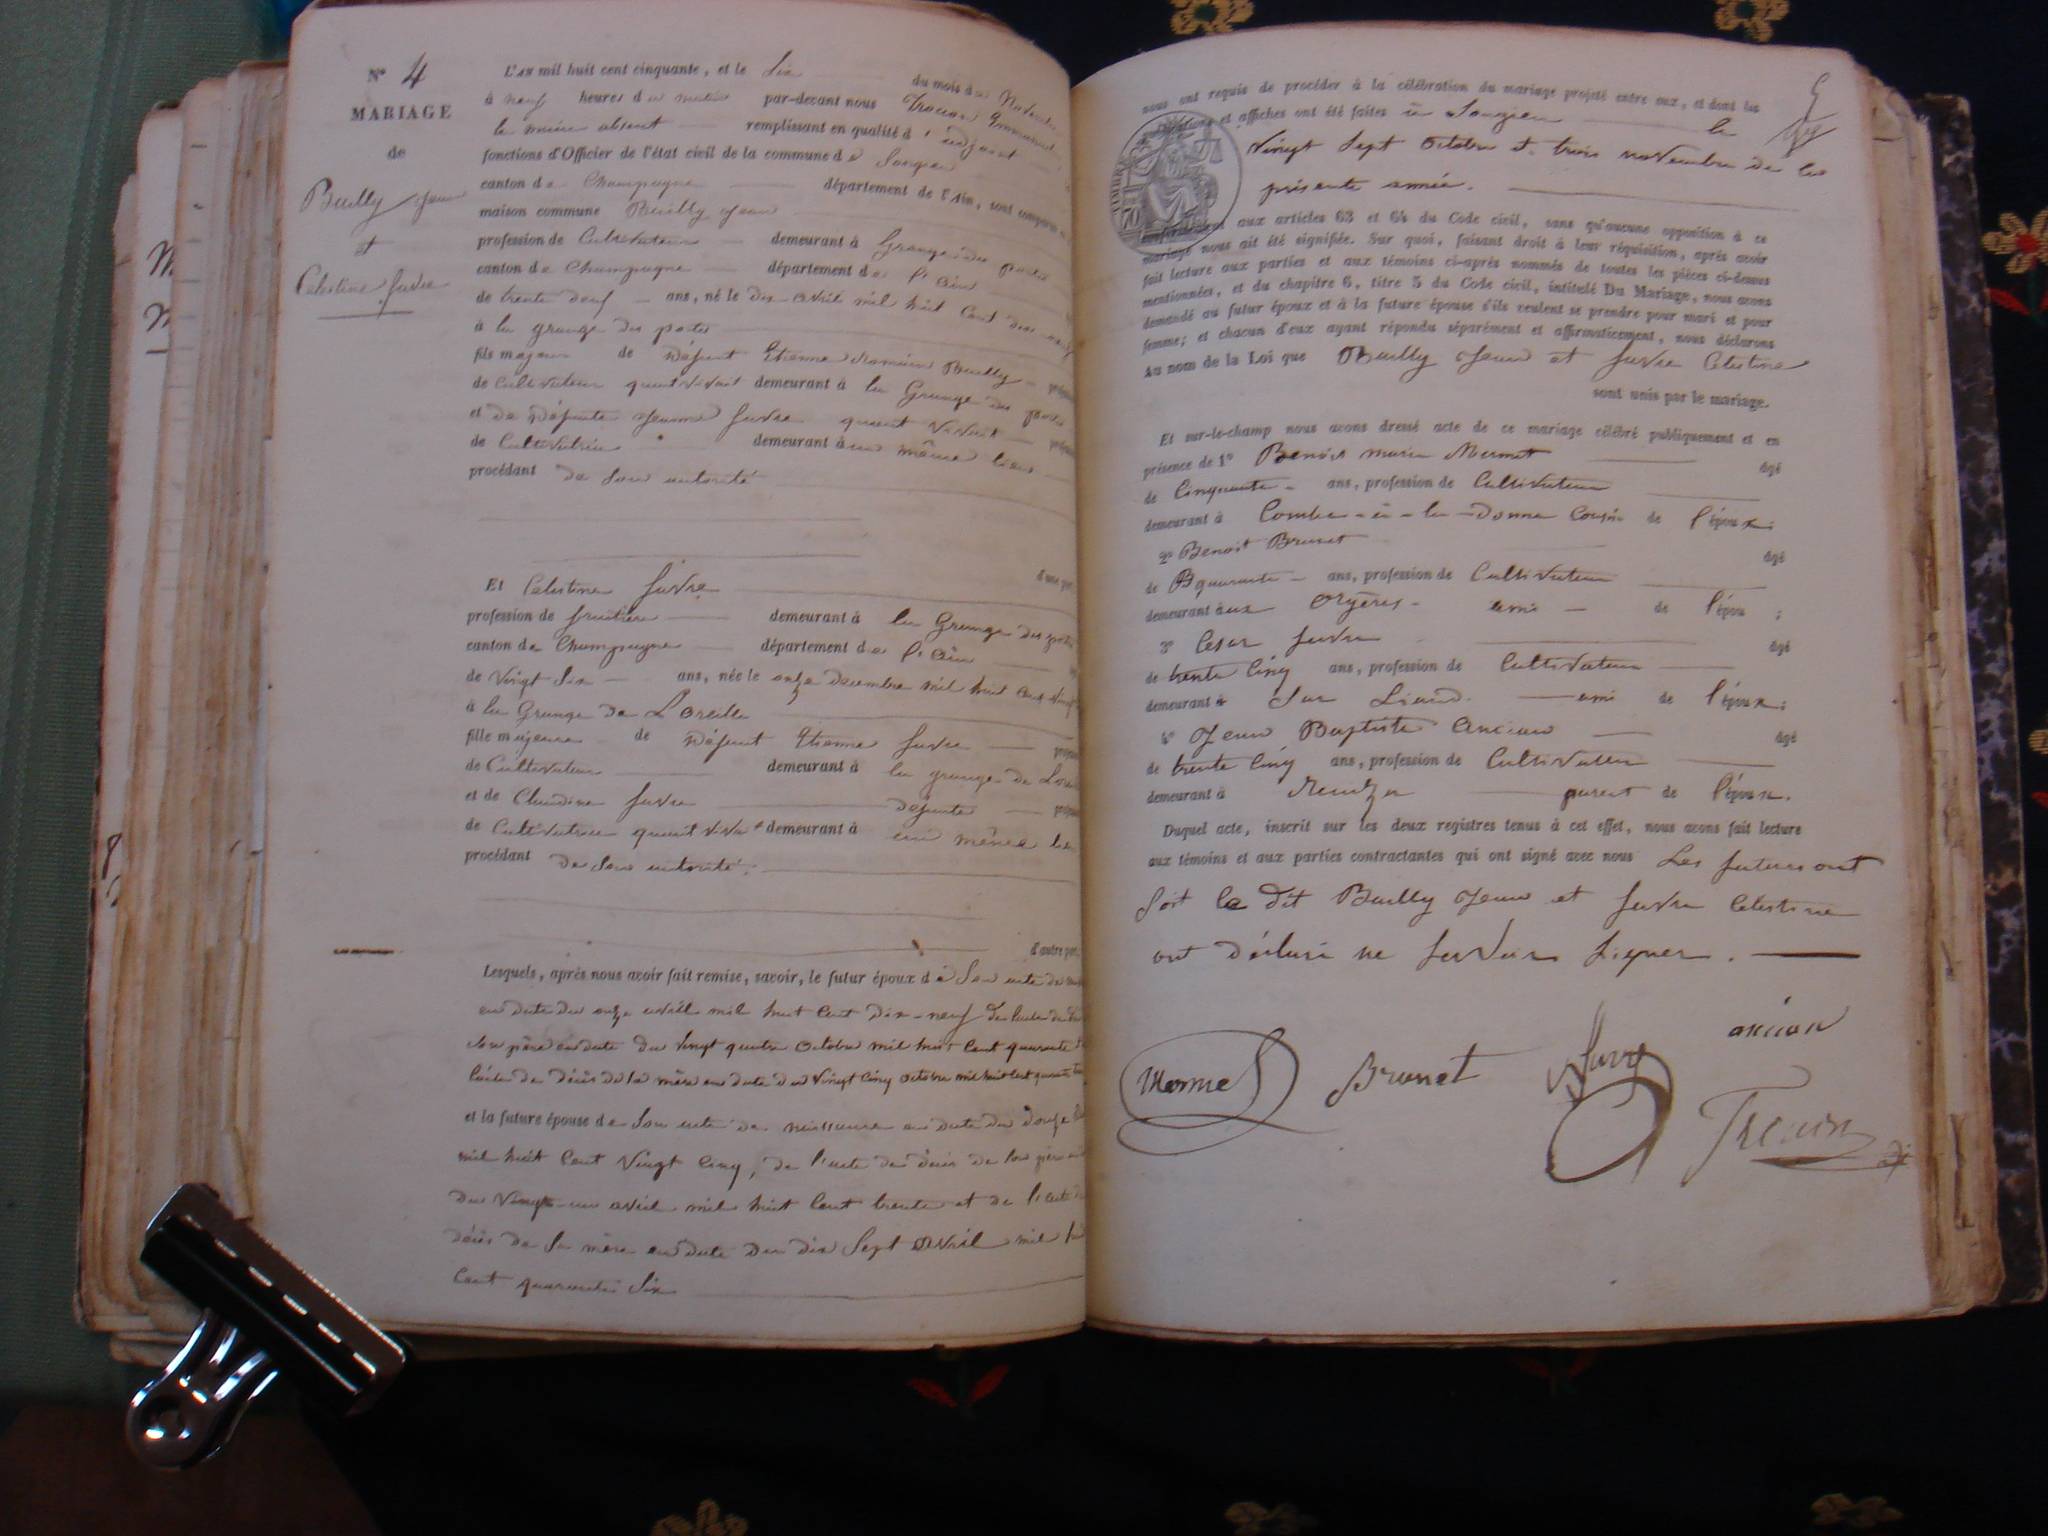 N° 4
MARIAGE
de
Bailly Jean
et
Celestine Favre
L'an mil huit cent cinquante, et le Six du mois de Novembre
à neuf heures du matin par-devant nous Trocon Emmanuel
le maire absent remplissant en qualité d'adjoint
fonctions d'Officier de l'état civil de la commune de Songieu
canton de Champagne département de l'Ain, sont comparus
maison commune Bailly Jean
profession de Cultivateur demeurant à Grange des portes
canton de Champagne département de l'ain
de trente deux ans, né le dix avril mil huit Cent dix neuf
à la grange des portes
fils majeur de Défunt Etienne Romain Bailly
de Cultivateur quant vivait demeurant à la Grange des portes
et de Défunte Jeanne Favre quant vivait
de Cultivatrice demeurant à au même lieu
procédant de Son autorité
d'une part
Et Celestine Favre
profession de fruitière demeurant à la Grange des portes
canton de Champagne département de l'ain
de Vingt Six ans, née le onze decembre mil huit Cent vingt
à la Grange de L'Oreille
fille majeure de Défunt Etienne Favre
de Cultivateur demeurant à la grange de
et de Claudine Favre défunte
de Cultivatrice quant viva demeurant à au même lieu
procédant de Son autorité.
d'autre part
Lesquels, après nous avoir fait remise, savoir, le futur époux de Son acte de
en date du onze avril mil huit Cent Dix-neuf de l'acte de
Son père en date du Vingt quatre Octobre mil huit Cent quarante
l'acte de Décès de la mère en date du Vingt Cinq Octobre mil huit Cent quarante
et la future épouse de Son acte de naissance en date du douze
mil huit Cent Vingt Cinq, de l'acte de décès de Son père
du Vingt-un avril mil huit Cent trente et de l'acte de
décès de Sa mère en date du dix Sept Avril mil
Cent quarante Six
nous ont requis de procéder à la célébration du mariage projeté entre eux, et dont les
publications et affiches ont été faites à Songieu le
Vingt Sept Octobre et trois novembre de la
présente année.
conformément aux articles 63 et 64 du Code civil, sans qu'aucune opposition à ce
mariage nous ait été signifiée. Sur quoi, faisant droit à leur réquisition, après avoir
fait lecture aux parties et aux témoins ci-après nommés de toutes les pièces ci-dessus
mentionnées, et du chapitre 6, titre 5 du Code civil, intitulé Du Mariage, nous avons
demandé au futur époux et à la future épouse s'ils veulent se prendre pour mari et pour
femme; et chacun d'eux ayant répondu séparément et affirmativement, nous déclarons
Au nom de la Loi que Bailly Jean et favre Celestine
sont unis par le mariage.
Et sur-le-champ nous avons dressé acte de ce mariage célébré publiquement et en
présence de 1° Benoit marie Mermet âgé
de Cinquante ans, profession de Cultivateur
demeurant à Combe-à-la-Donne Cousin de l'époux;
2° Benoit Brunet âgé
de quarante ans, profession de Cultivateur
demeurant aux Orgères ami de l'épou ;
3° Cesar favre âgé
de trente Cinq ans, profession de Cultivateur
demeurant à Sur Liand. ami de l'époux;
4° Jean Baptiste Ancian âgé
de trente Cinq ans, profession de Cultivateur
demeurant à parent de l'époux.
Duquel acte, inscrit sur les deux registres tenus à cet effet, nous avons fait lecture
aux témoins et aux parties contractantes qui ont signé avec nous Les futurs ont
Soit le dit Bailly Jean et favre Celestine
ont déclaré ne Savoir Signer.
Mermet Brunet Favre ancian
Trocon